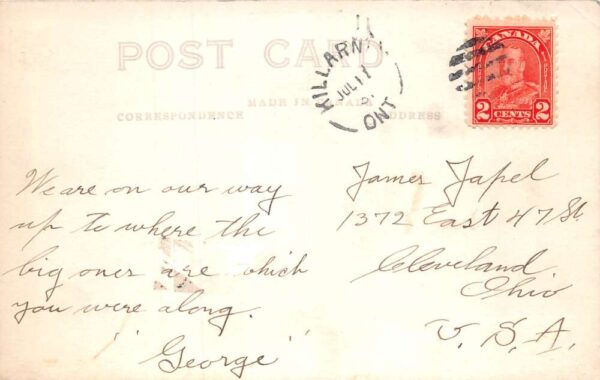 POST CARD
MADE IN CANADA
CORRESPONDENCE
ADDRESS
KILLARNEY
JUL 11
ONT
CANADA
2 CENTS 2
We are on our way
up to where the
big ones are which
you were along.
"George"
James Japel
1372 East 47 St
Cleveland
Ohio
U.S.A.